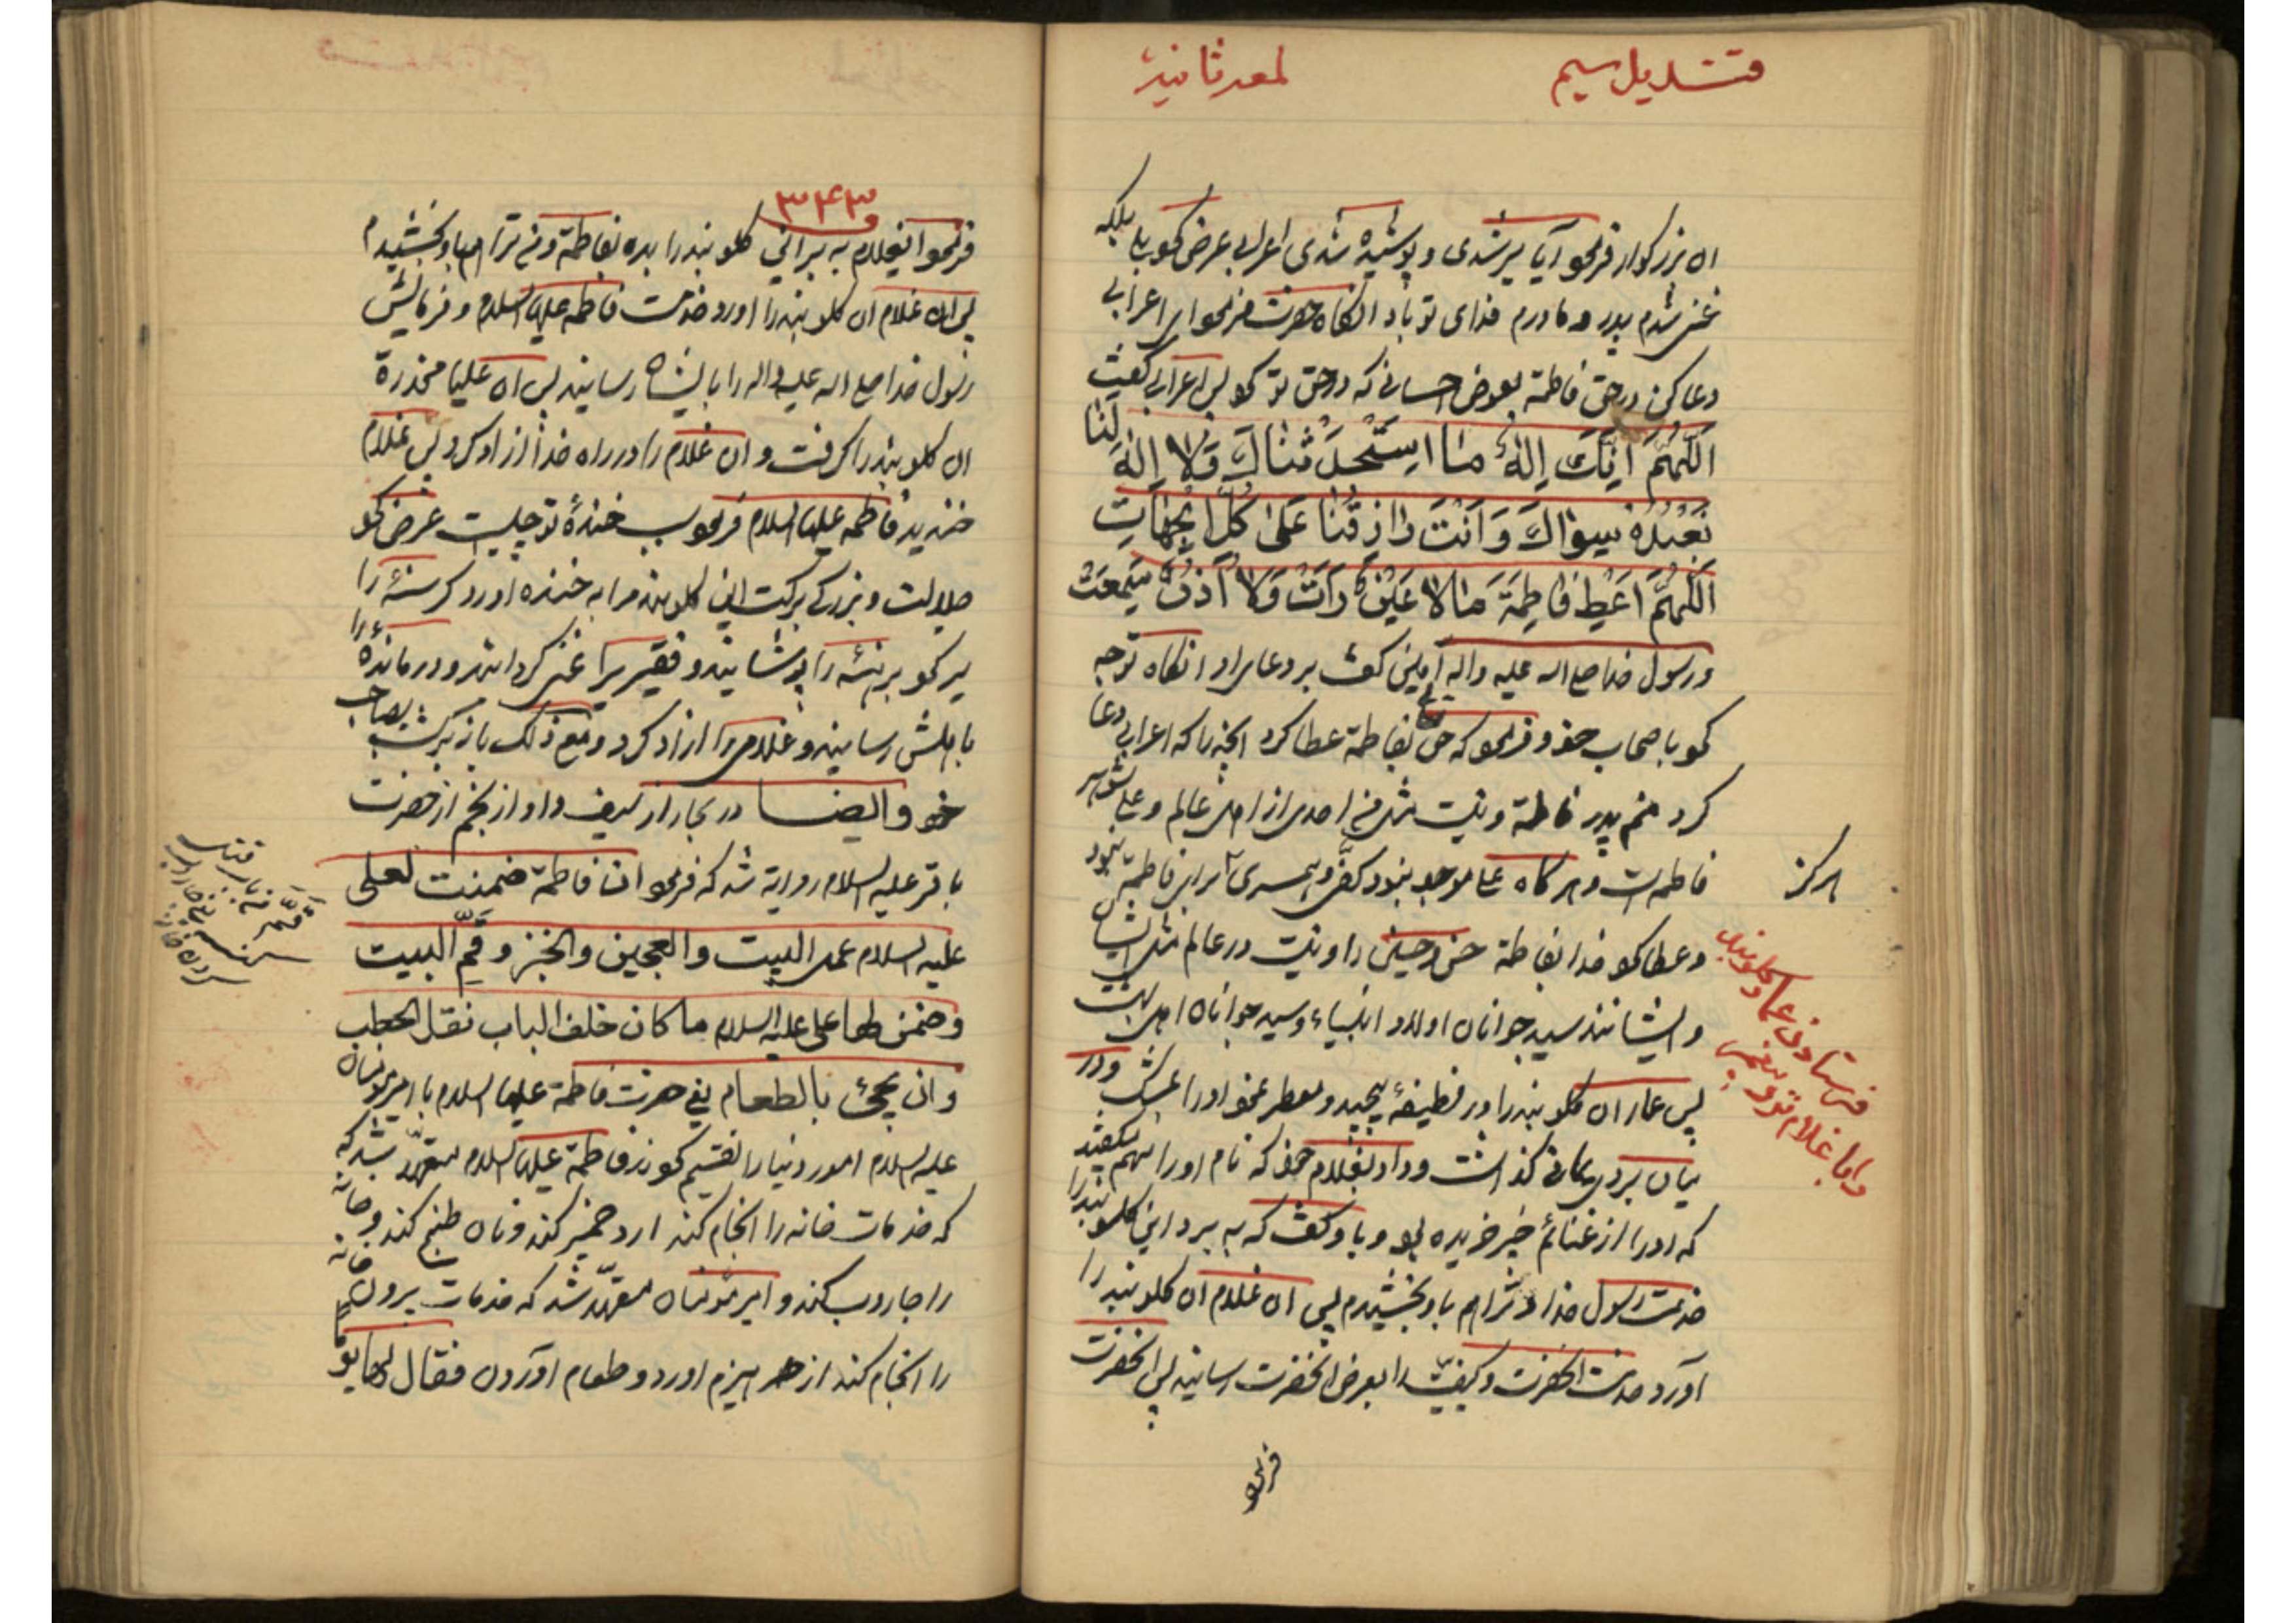 قندیل سیم
لمعه ثانیه
ان بزرکوار فرمود آیا سیر شدی و پوشیده شدی اعرابی عرض کرد بلی بلکه
غنی شدم پدر و مادرم فدای تو باد انکاه حضرت فرمود ای اعرابی
دعا کن در حق فاطمة بعوض احسانی که در حق تو کرد پس اعرابی کفت
اَللّهُمَّ اِنَّكَ اِلهٌ مَا اسْتَحْدَثْنَاكَ وَلا اِلهَ لَنَا
نَعْبُدُهُ سِوَاكَ وَاَنْتَ رَازِقُنَا عَلَى كُلِّ الْجِهَاتِ
اَللّهُمَّ اَعْطِ فَاطِمَةَ مَا لا عَيْنٌ رَاَتْ وَلا اُذُنٌ سَمِعَتْ
و رسول خدا صلی الله علیه واله آمین کفت بر دعای او انکاه توجه
کرد باصحاب خود و فرمود که حق تع بفاطمة عطا کرد انچه را که اعرابی دعا
کرد منم پدر فاطمة و نیست مثل من احدی از اهل عالم و علی شوهر
فاطمه است و هرکاه علی موجود نبود کفو و همسری برابر فاطمة نبود
هرکز
و عطا کرد خدا بفاطمة حسن و حسین را و نیست در عالم مثل ایشان
و ایشانند سید جوانان اولاد انبیاء و سید جوانان اهل بهشت
فرستادن عمار کلوبند
را با غلام نزد پیغمبر
پس عمار ان کلوبند را در قطیفهٔ پیچید و معطر نمود او را بمشک و در
میان برد یمانی کذاشت و داد بغلام خود که نام او را سهم میکفتند
که او را از غنائم خیبر خریده بود و باو کفت که به بر این کلوبند را
خدمت رسول خدا و ترا هم باو بخشیدم پس ان غلام ان کلوبند را
آورد خدمت انحضرت و کیفیت را بعرض انحضرت رسانید پس انحضرت
فرمود
۳۴۳
فرمود ایغلام به بر این کلوبند را بده بفاطمة و من ترا هم باو بخشیدم
پس ان غلام ان کلوبند را اورد خدمت فاطمه علیها السلام و فرمایش
رسول خدا صلی الله علیه واله را بایشان رسانید پس ان علیا مخدرة
ان کلوبند را کرفت و ان غلام را در راه خدا ازاد کرد پس غلام
خندید فاطمه علیها السلام فرمود سبب خندهٔ تو چیست عرض کرد
جلالت و بزرکی برکت این کلوبند مرا به خنده اورد کرسنهٔ را
سیر کرد برهنهٔ را پوشانید و فقیریرا غنی کردانید و درماندهٔ را
باهلش رسانید و غلامی را ازاد کرد و مع ذلک باز برکشت بصاحب
خود و ایضا در بحار از سیف و او از نجم از حضرت
باقر علیه السلام روایة شد که فرمود ان فاطمة ضمنت لعلی
علیه السلام عمل البیت والعجین والخبز وقمّ البیت
وضمن لها علی علیه السلام ما کان خلف الباب نقل الحطب
وان یجئ بالطعام یعنی حضرت فاطمة علیها السلام با امیر مؤمنان
علیه السلام امور دنیا را تقسیم کردند فاطمة علیها السلام متعهد شد که
که خدمات خانه را انجام کند ارد خمیر کند و نان طبخ کند و خانه
را جاروب کند و امیر مؤمنان متعهد شد که خدمات بیرون خانه
را انجام کند از هیزم اورد و طعام آوردن فقال لها یو